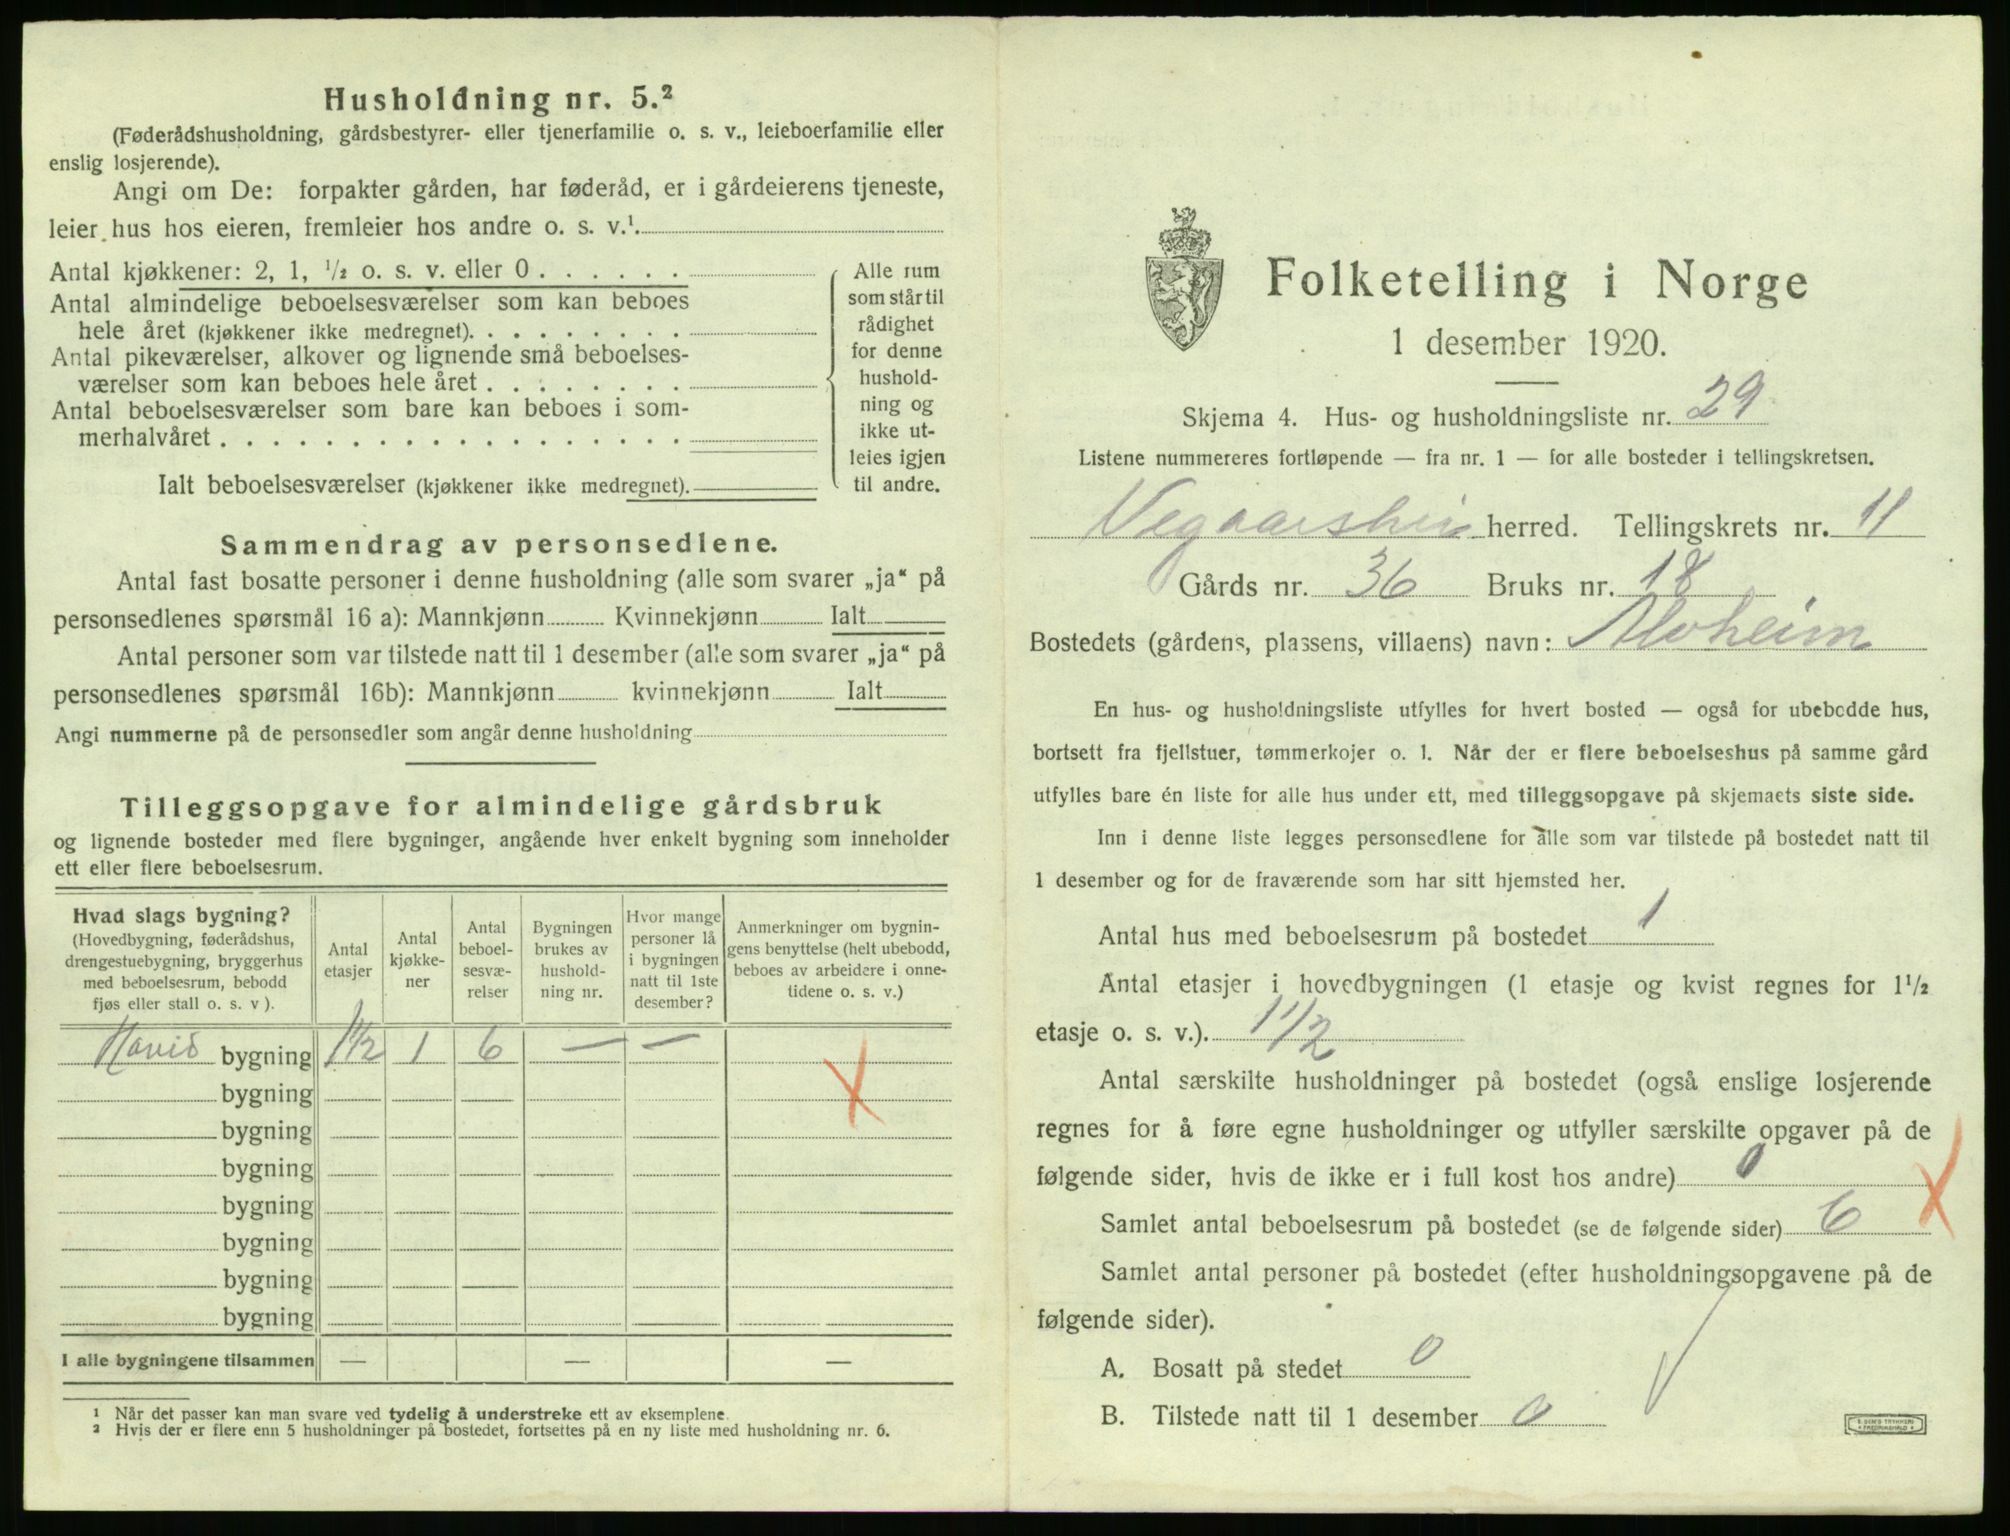 Husholdning nr. 5.²
(Føderådshusholdning, gårdsbestyrer- eller tjenerfamilie o. s. v., leieboerfamilie eller
enslig losjerende).
Angi om De: forpakter gården, har føderåd, er i gårdeierens tjeneste,
leier hus hos eieren, fremleier hos andre o. s. v.¹
Antal kjøkkener: 2, 1, ½ o. s. v. eller 0 . . . . . .
Antal almindelige beboelsesværelser som kan beboes
hele året (kjøkkener ikke medregnet). . . . . . . . .
Antal pikeværelser, alkover og lignende små beboelses-
værelser som kan beboes hele året . . . . . . . .
Antal beboelsesværelser som bare kan beboes i som-
merhalvåret . . . . . . . . . . . . . . . . . .
Ialt beboelsesværelser (kjøkkener ikke medregnet).
Alle rum
som står til
rådighet
for denne
hushold-
ning og
ikke ut-
leies igjen
til andre.
Sammendrag av personsedlene.
Antal fast bosatte personer i denne husholdning (alle som svarer „ja“ på
personsedlenes spørsmål 16 a): Mannkjønn Kvinnekjønn Ialt
Antal personer som var tilstede natt til 1 desember (alle som svarer „ja“ på
personsedlenes spørsmål 16b): Mannkjønn kvinnekjønn Ialt
Angi nummerne på de personsedler som angår denne husholdning
Tilleggsopgave for almindelige gårdsbruk
og lignende bosteder med flere bygninger, angående hver enkelt bygning som inneholder
ett eller flere beboelsesrum.
Hvad slags bygning?
(Hovedbygning, føderådshus,
drengestuebygning, bryggerhus
med beboelsesrum, bebodd
fjøs eller stall o. s. v ).
Antal
etasjer
Antal
kjøkke-
ner
Antal
beboel-
sesvæ-
relser
Bygningen
brukes av
hushold-
ning nr.
Hvor mange
personer lå
i bygningen
natt til 1ste
desember?
Anmerkninger om bygnin-
gens benyttelse (helt ubebodd,
beboes av arbeidere i onne-
tidene o. s. v.)
bygning 1½ 1 6 — —
bygning
bygning
bygning
bygning
bygning
bygning
bygning
I alle bygningene tilsammen — — —
¹ Når det passer kan man svare ved tydelig å understreke ett av eksemplene.
² Hvis der er flere enn 5 husholdninger på bostedet, fortsettes på en ny liste med husholdning nr. 6.
Folketelling i Norge
1 desember 1920.
Skjema 4. Hus- og husholdningsliste nr. 29
Listene nummereres fortløpende — fra nr. 1 — for alle bosteder i tellingskretsen.
Vegaarshei herred. Tellingskrets nr. 11
Gårds nr. 36 Bruks nr. 18
Bostedets (gårdens, plassens, villaens) navn: Alvheim
En hus- og husholdningsliste utfylles for hvert bosted — også for ubebodde hus,
bortsett fra fjellstuer, tømmerkojer o. l. Når der er flere beboelseshus på samme gård
utfylles bare én liste for alle hus under ett, med tilleggsopgave på skjemaets siste side.
Inn i denne liste legges personsedlene for alle som var tilstede på bostedet natt til
1 desember og for de fraværende som har sitt hjemsted her.
Antal hus med beboelsesrum på bostedet 1
Antal etasjer i hovedbygningen (1 etasje og kvist regnes for 1½
etasje o. s. v.). 1½
Antal særskilte husholdninger på bostedet (også enslige losjerende
regnes for å føre egne husholdninger og utfyller særskilte opgaver på de
følgende sider, hvis de ikke er i full kost hos andre) 0
Samlet antal beboelsesrum på bostedet (se de følgende sider) 6
Samlet antal personer på bostedet (efter husholdningsopgavene på de
følgende sider).
A. Bosatt på stedet 0
B. Tilstede natt til 1 desember 0